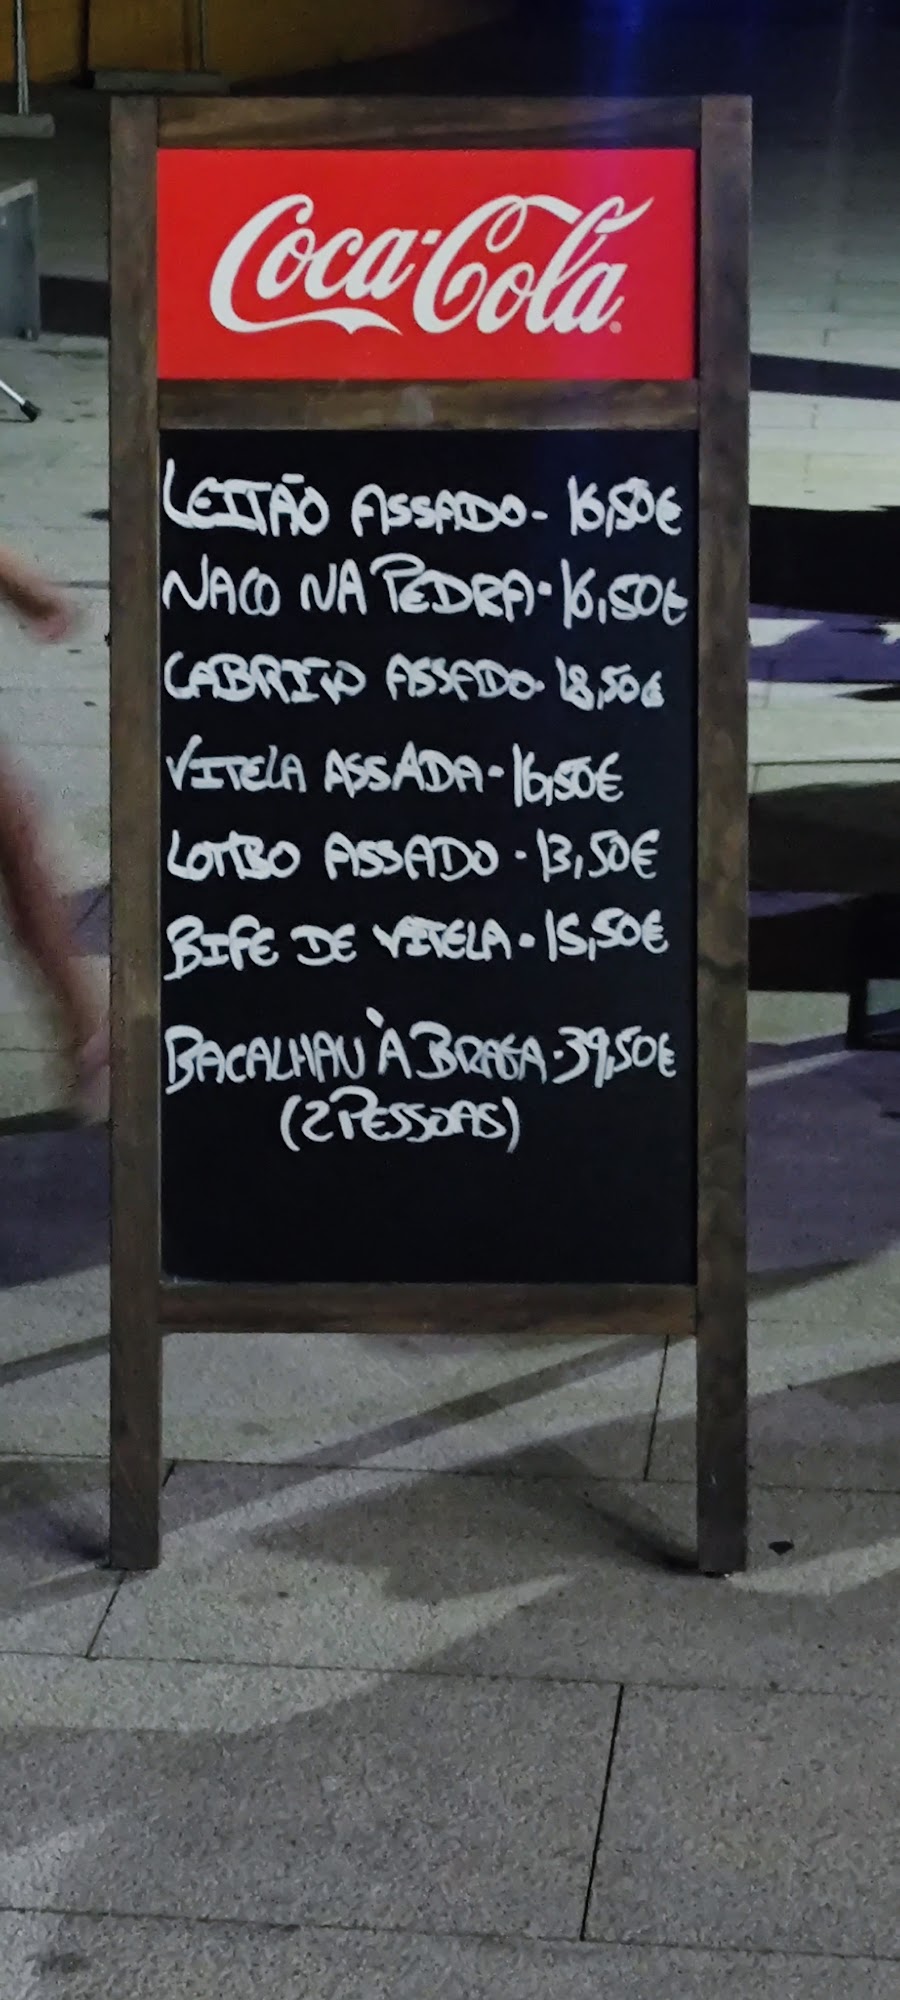 Coca-Cola
LEITÃO ASSADO - 16,50€
NACO NA PEDRA - 16,50€
CABRITO ASSADO - 18,50€
VITELA ASSADA - 16,50€
LOMBO ASSADO - 13,50€
BIFE DE VITELA - 15,50€
BACALHAU À BRAGA - 39,50€
(2 PESSOAS)